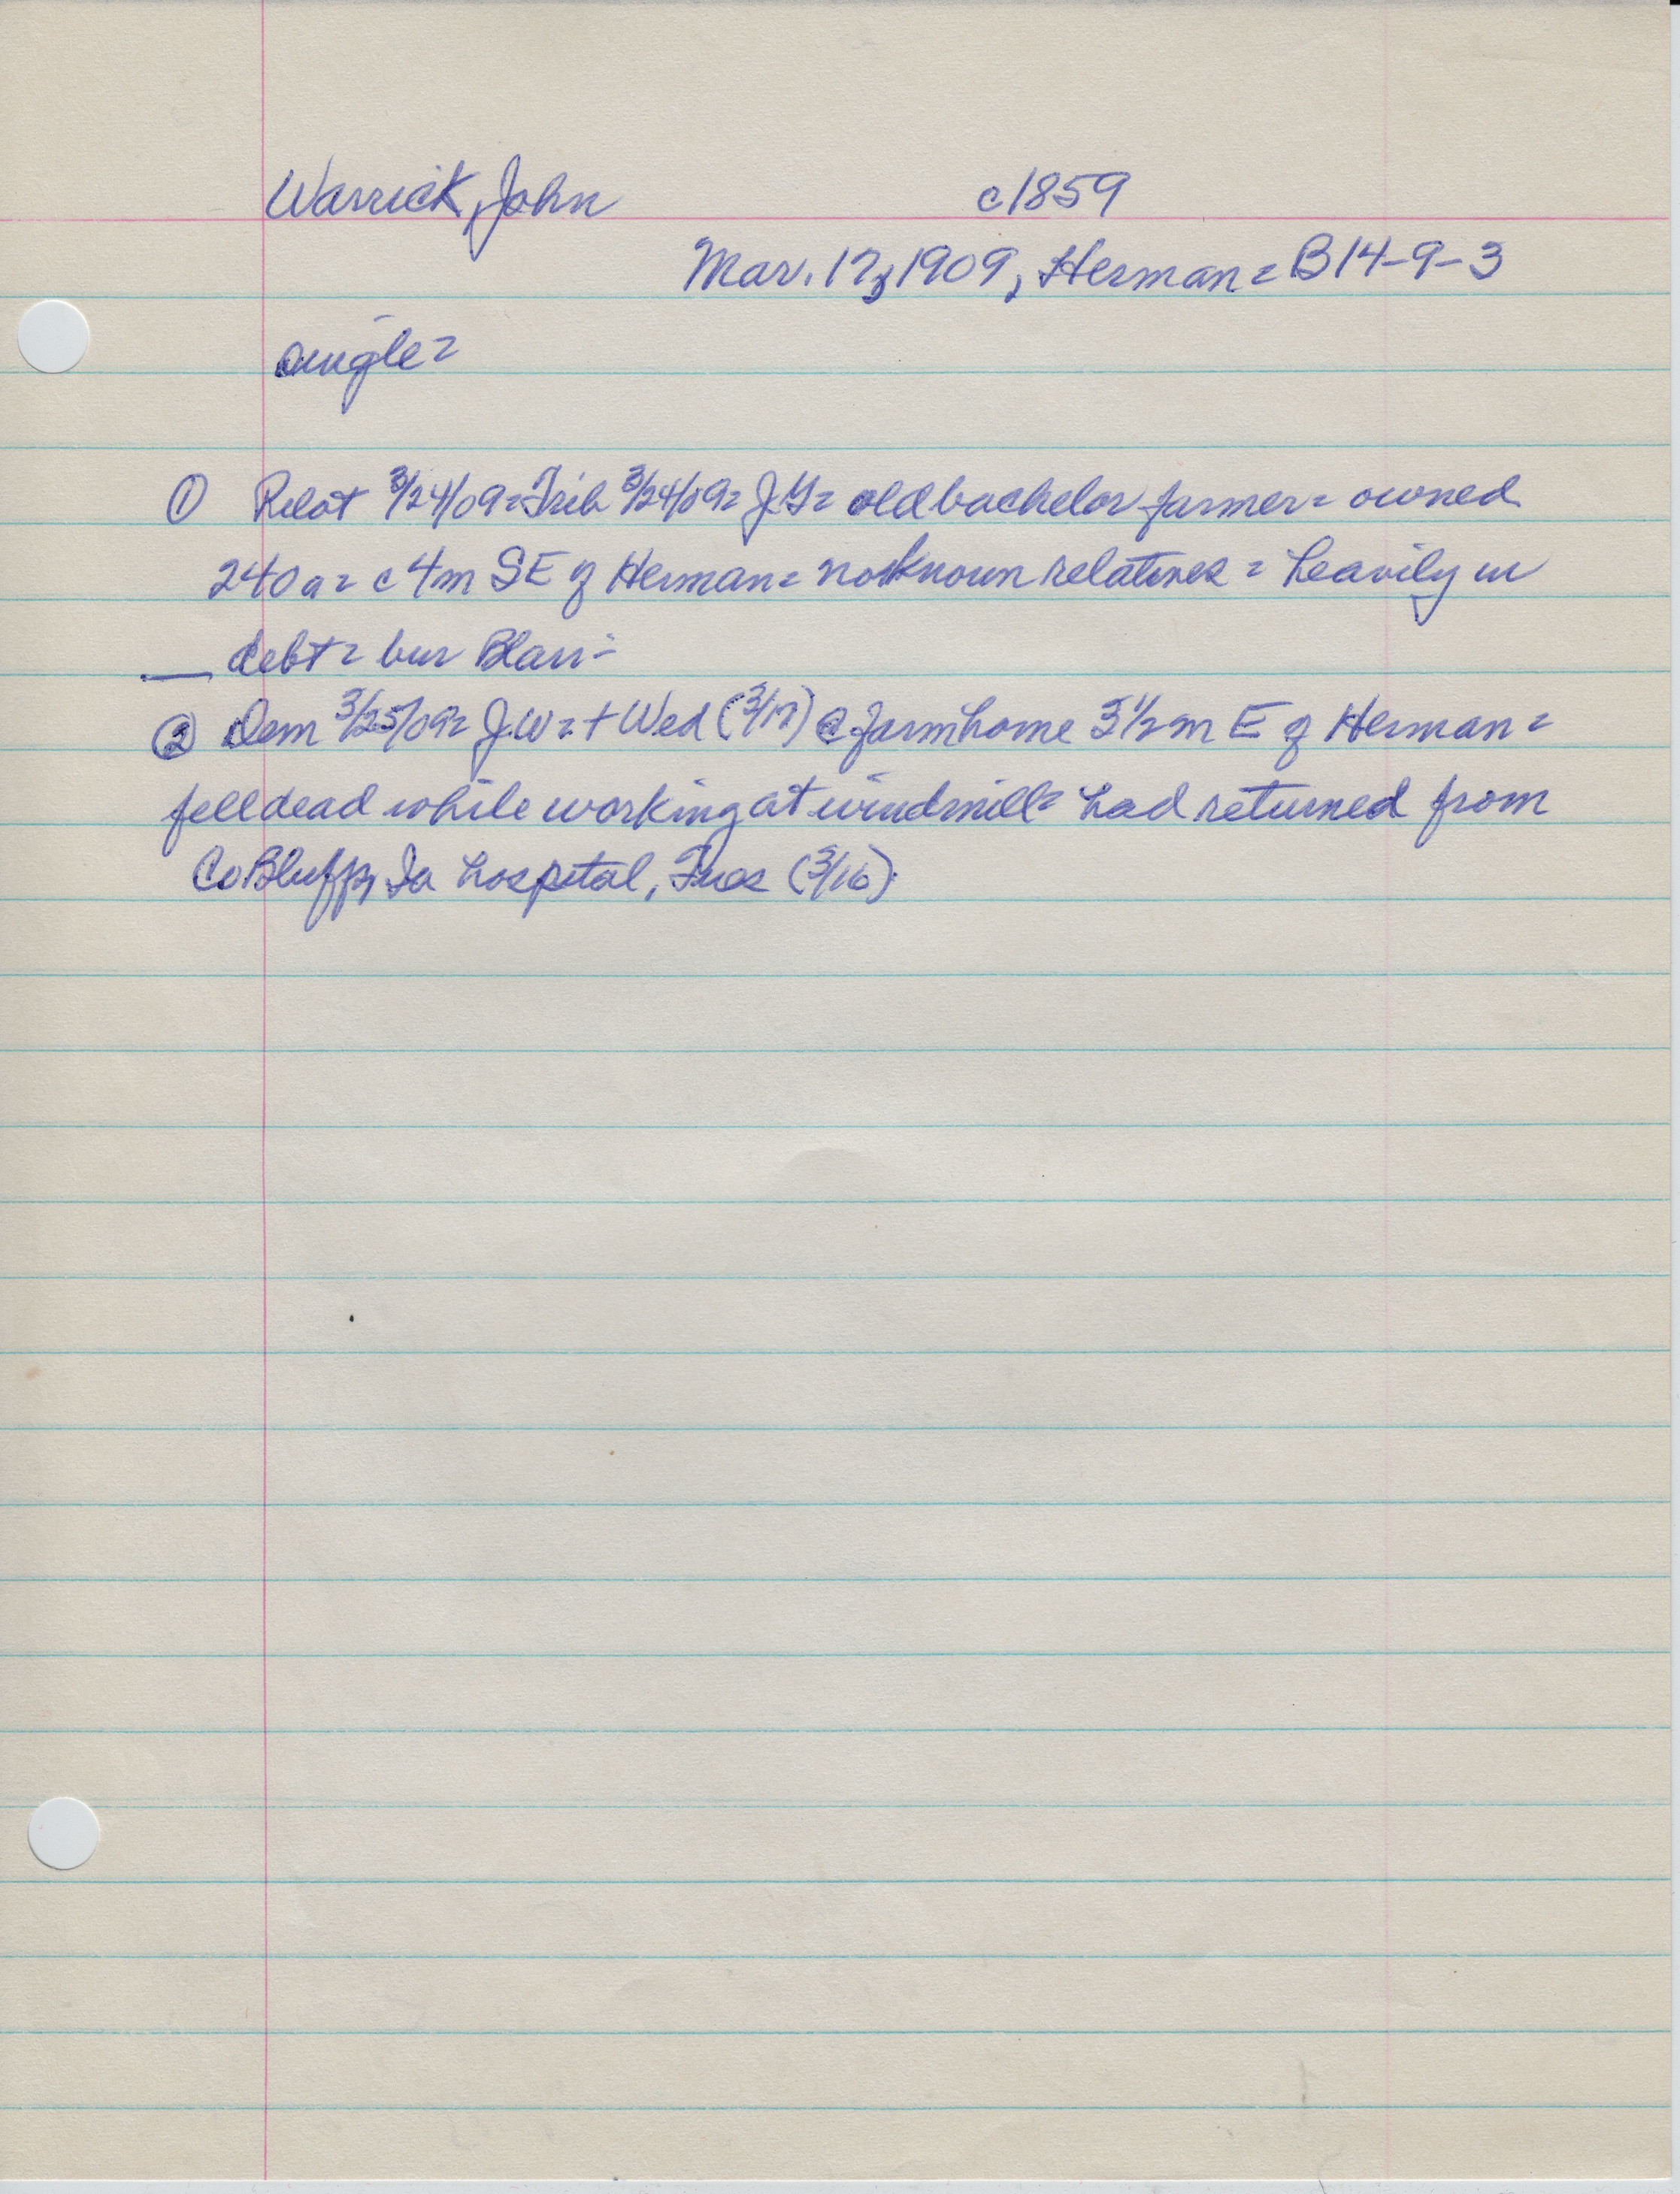 Warrick, John c1859
Mar. 17, 1909, Herman = B14-9-3
single =
① Pilot 3/24/09 = Trib 3/24/09 = JW = old bachelor farmer = owned
240 a = c 4m SE of Herman = no known relatives = heavily in
debt = bur Blair =
② Dem 3/25/09 = JW = + Wed (3/17) @ farm home 3 1/2 m E of Herman =
fell dead while working at windmill = had returned from
Co. Bluffs, Ia hospital, Tues (3/16).